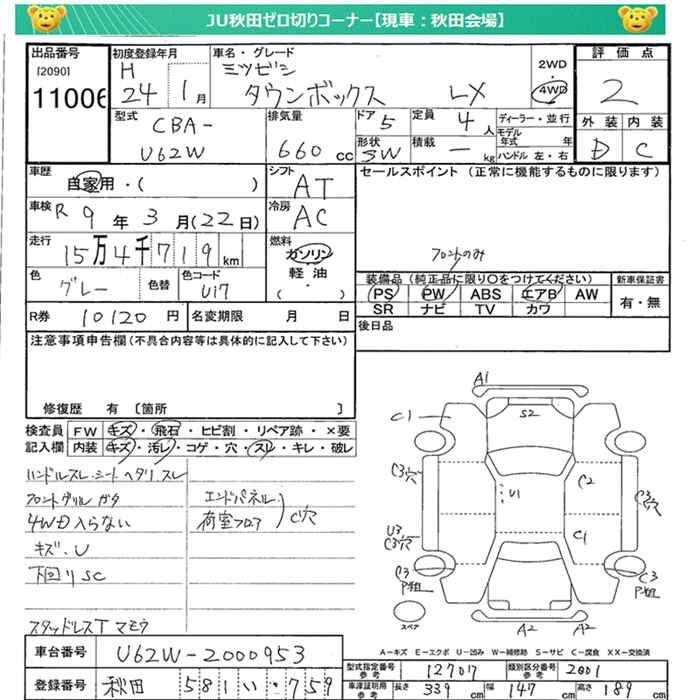 JU秋田ゼロ切りコーナー【現車：秋田会場】
出品番号 初度登録年月 車名・グレード 評価点
[2090] H 24 1月 ミツビシ 2WD・4WD 2
11006 タウンボックス LX
型式 CBA- U62W 排気量 660 cc ドア 5 定員 4人 ディーラー・並行 外装 内装
形状 SW 積載 ー kg モデル年式 年 ハンドル 左・右 D C
車歴 自家用・( ) シフト AT セールスポイント (正常に機能するものに限ります)
車検 R 9年 3月(22日) 冷房 AC
走行 15万4千719km 燃料 ガソリン・軽油・( ) フロントのみ
色 グレー 色替 色コード U17 装備品(純正品に限り○をつけてください) 新車保証書
PS PW ABS エアB AW 有・無
SR ナビ TV カワ
R券 10120円 名変期限 月 日 後日品
注意事項申告欄(不具合内容等は具体的に記入して下さい)
修復歴 有 〔箇所 〕
検査員記入欄 FW キズ・飛石・ヒビ割・リペア跡・×要
内装 キズ・汚レ・コゲ・穴・スレ・キレ・破レ
ハンドルスレ・シートヘタリ スレ
フロントグリル ガタ エンドパネル
4WD入らない 荷室フロア C穴
キズ・U
下回りSC
スタッドレスT マモウ
A1
C1 S2
C3穴 C2 C3穴
U1
U3 C3穴 C1
C3 C3
スペア A2 A2
A-キズ E-エクボ U-凹み W-補修跡 S-サビ C-腐食 XX-交換済
車台番号 U62W-2000953 型式指定番号 参考 12707 類別区分番号 参考 2001
登録番号 秋田 581 い 759 車庫証明用 参考 長さ 339cm 幅 147cm 高さ 189cm